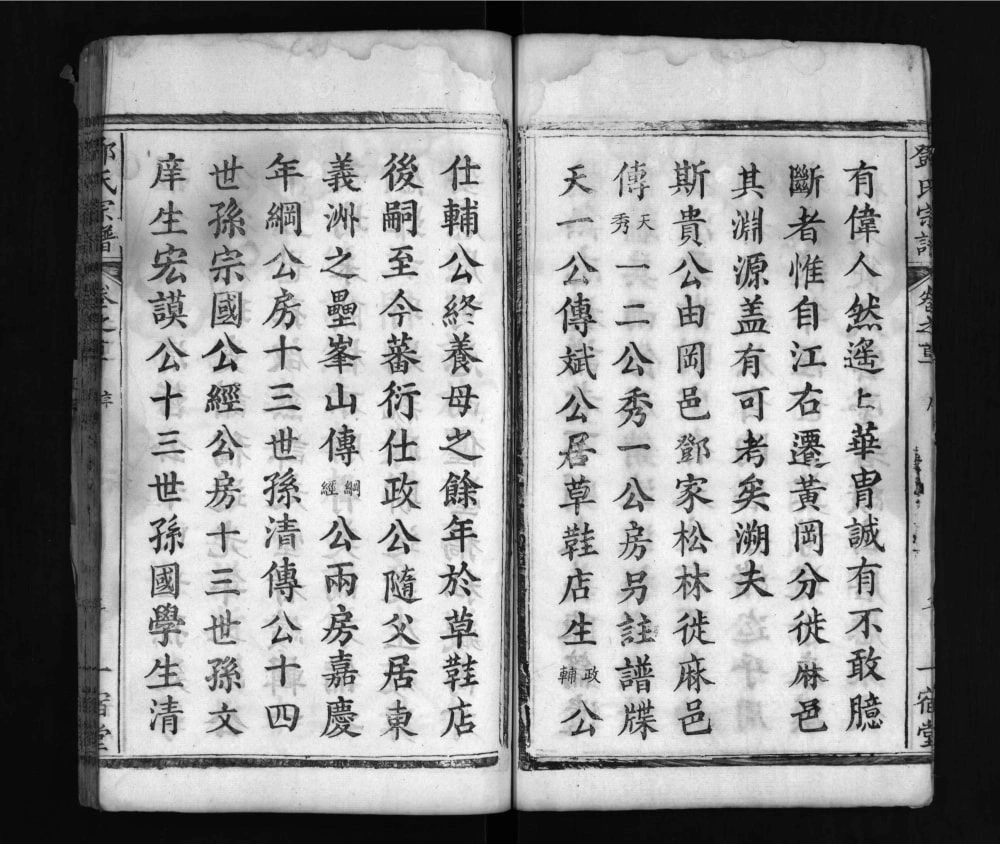 鄧氏宗譜 卷之首 序 一宿堂
有偉人然遙遙華冑誠有不敢臆
斷者惟自江右遷黃岡分徙麻邑
其淵源盖有可考矣溯夫
斯貴公由岡邑鄧家松林徙麻邑
傳天秀一二公秀一公房另註譜牒
天一公傳斌公居草鞋店生政輔公
仕輔公終養母之餘年於草鞋店
後嗣至今蕃衍仕政公隨父居東
義洲之壘峯山傳綱經公兩房嘉慶
年綱公房十三世孫清傳公十四
世孫宗國公經公房十三世孫文
庠生宏謨公十三世孫國學生清
氏宗譜 卷之 序 一宿堂